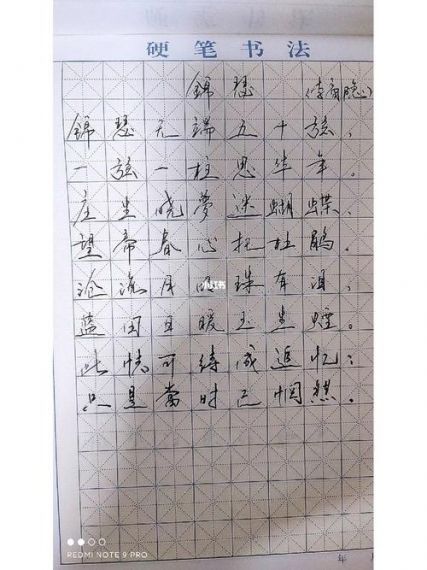 硬笔书法
錦瑟 (李商隐)
錦瑟无端五十弦,
一弦一柱思华年.
庄生晓夢迷蝴蝶,
望帝春心托杜鹃.
沧海月明珠有泪,
蓝田日暖玉生烟。
此情可待成追忆;
只是當时已惘然。
小红书
REDMI NOTE 9 PRO
年